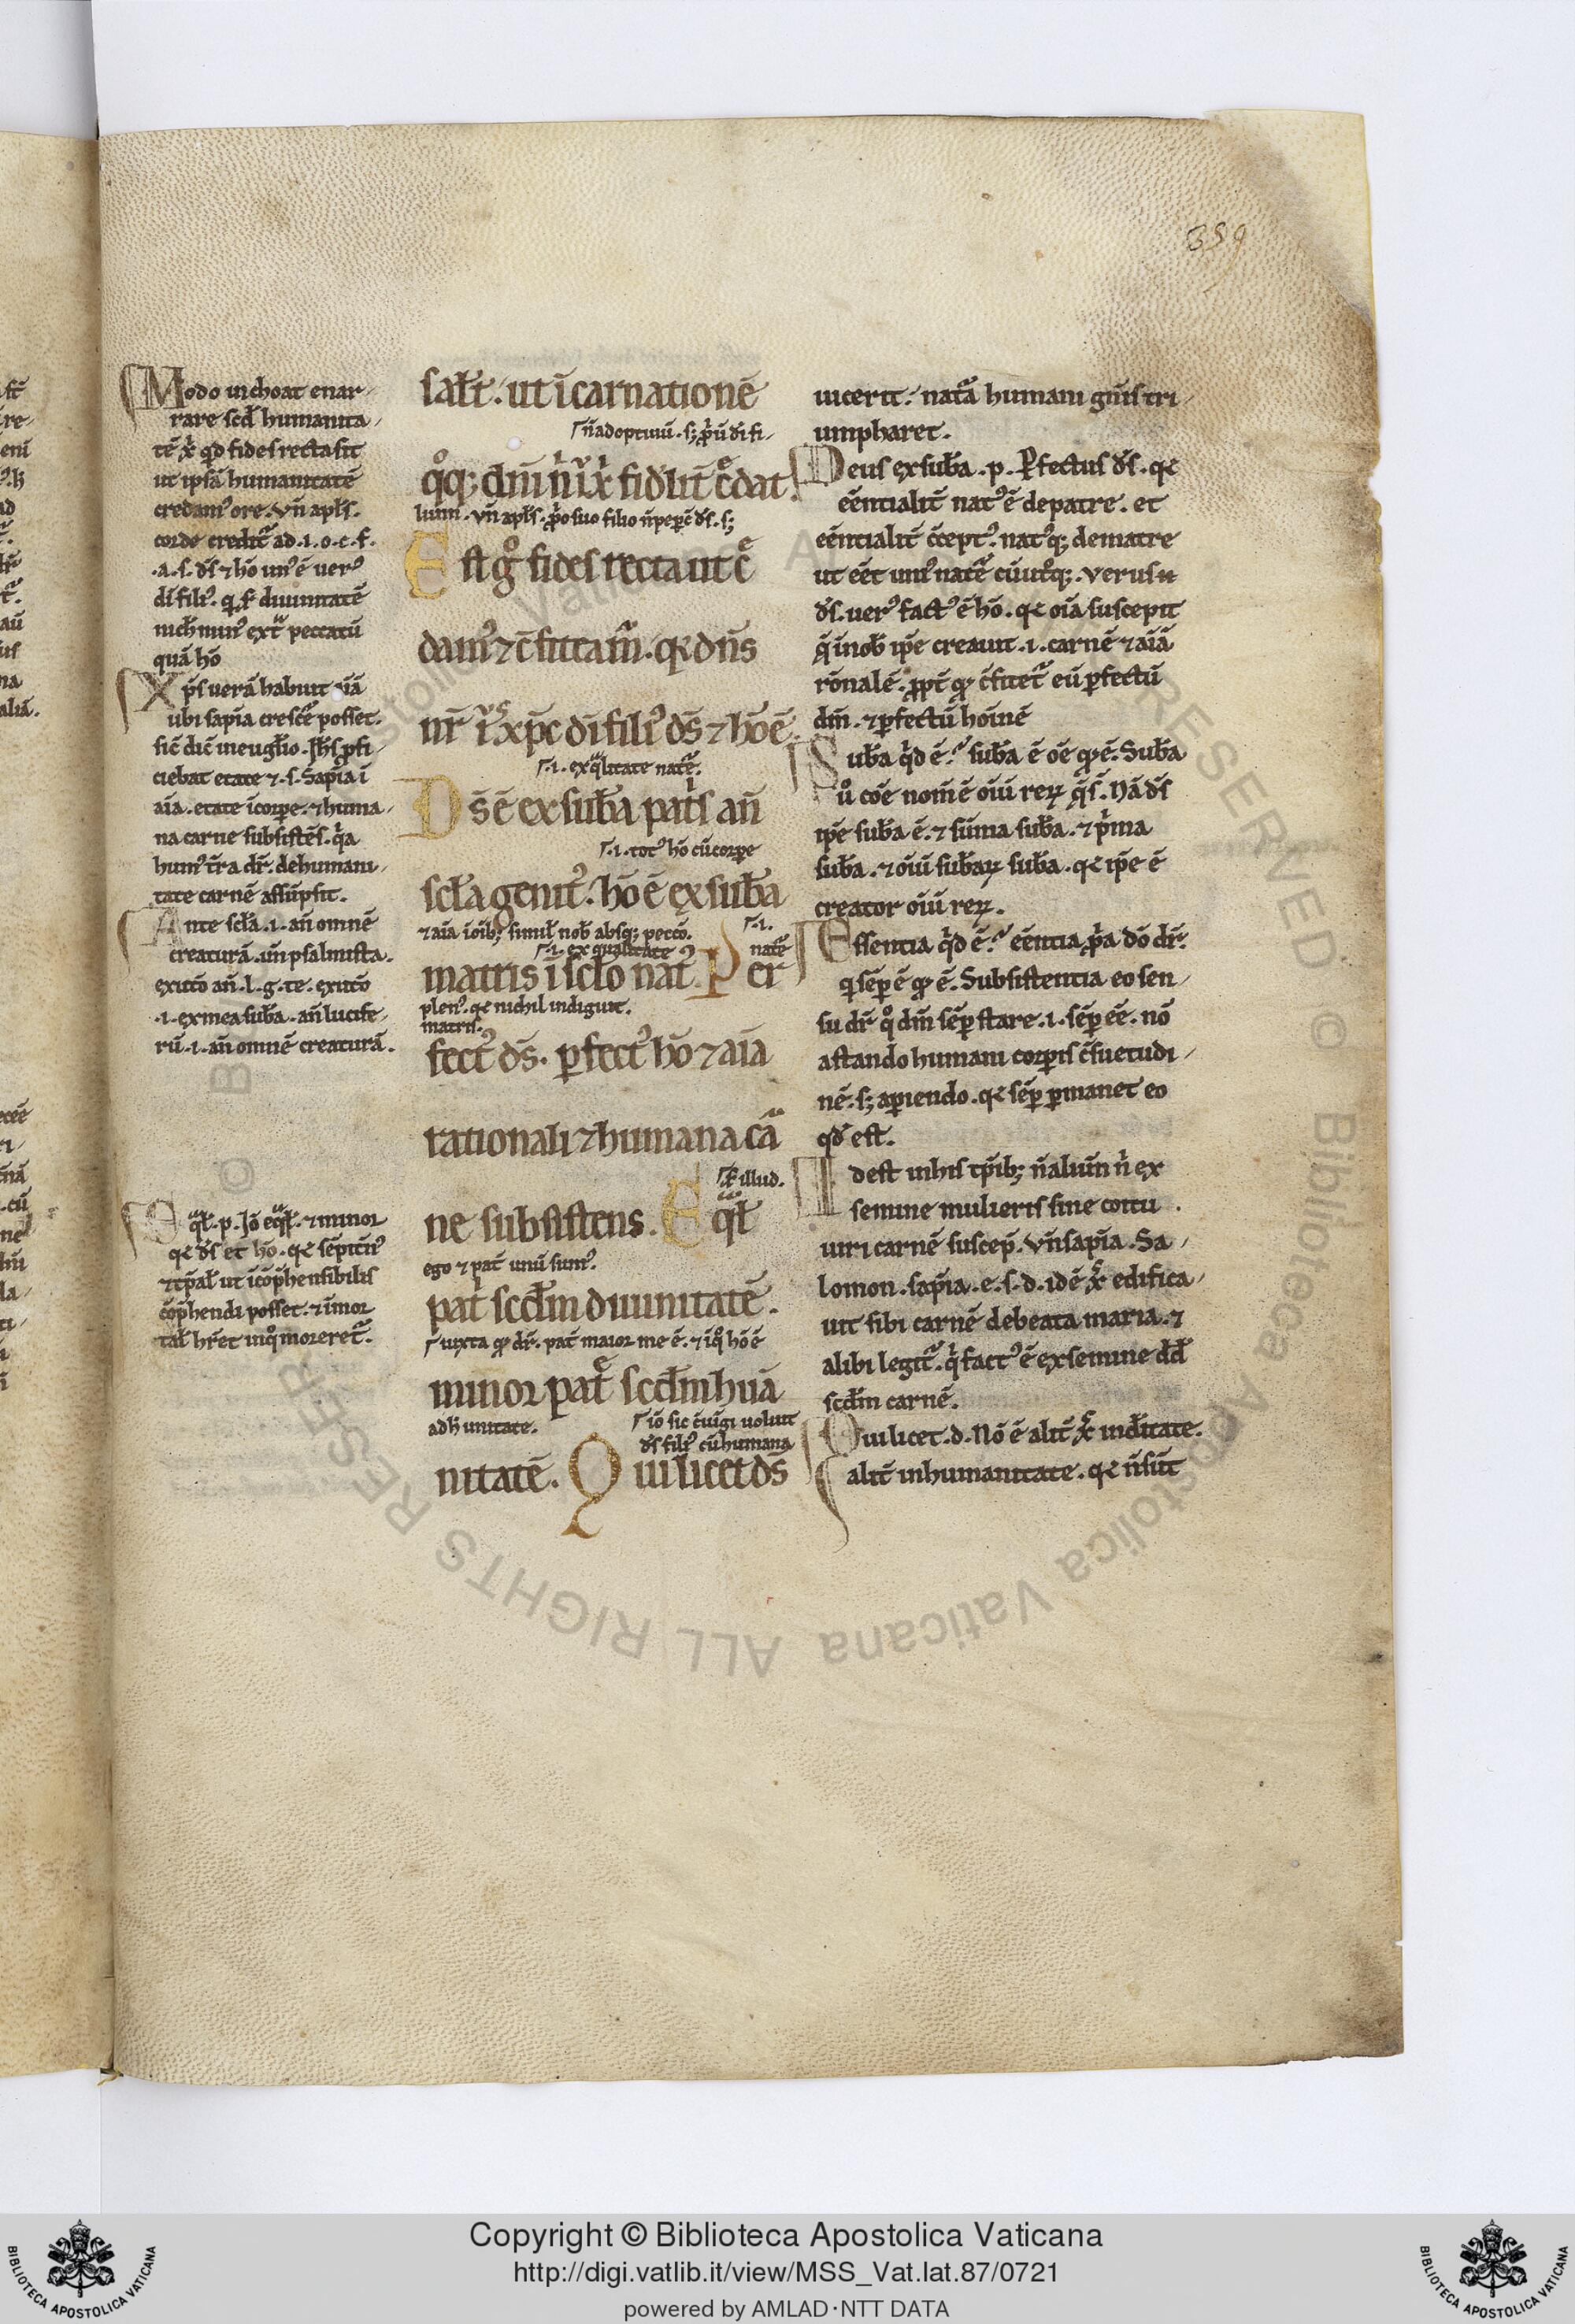 359
Modo inchoat enar-
rare scđ humanita-
tē x̄ qđ fides recta sit
ut ipsā humanitatē
credamꝰ ore. Vn̄ apl̄s.
corde credit̃ ad .i.o.c.f.
.a.s. d̄s ⁊ hō unꝰ ē uerꝰ
dī filiꝰ. q̇ s̄ diuinitatē
nich̄ minꝰ ext̃ peccatū
quā hō
Xp̄s uerā habuit aīā
ubi sapīa cresc̄e posset.
sic̄ dic̄ in eugl̄io. Ih̄s ꝓfi-
ciebat etate ⁊ .s. Sapīa ī
aīa. etate ī corꝑe. ⁊ huma-
na carne subsistēs. q̇a
humꝰ tr̄a dr̄. de humani-
tate carnē assūpsit.
Ante scl̄a .i. an̄ omnē
creaturā. un̄ psalmista.
ex utō an̄ .l.g.te. ex utō
.i. ex mea sub̄a. an̄ lucife-
rū .i. an̄ omnē creaturā.
Eq̃l̄.p. Iō eq̃l̄. ⁊ minor
q̇ d̄s et hō. q̇ sēpit̄nꝰ
⁊ tp̄al̄ ut īcōp̄hensibilis
cōp̄hendi posset. ⁊ īmor
tal̄ hr̄et in q̊ moreret̃.
sal̄t. ut īcarnationē
⸀n̄ adoptiuū. sꝫ ꝓp̄ū dī fi-
q̊qꝫ dn̄i n̄ri iħu x̄ fidl̄it̄ c̄dat.
liūm. Vn̄ apl̄s. ꝓp̄o suo filio n̄ peꝑc̄ d̄s. sꝫ
Est g̊ fides recta ut c̄
damꝰ ⁊ c̄fiteam̃. q̇ dn̄s
nr̄ iħs xp̄c dī filiꝰ d̄s ⁊ hō ē.
⸀.i. ex q̃litate nat̃e.
D̄s ē ex sub̄a pat̄s an̄
⸀.i. totꝰ hō cū corꝑe
scl̄a genitꝰ. hō ē ex sub̄a
⁊ aīa ī oīb; simil̄ nob̄ absqꝫ pecc̄o.
⸀.i. ex qualitate
⸀.i.
nat̃e
matris ī scl̄o natꝰ. Per
plenꝰ. q̇ nichil indiguit.
matris.
fectꝰ d̄s. ꝑfectꝰ hō ⁊ aīa
rationali ⁊ humana cã
⸀s̄ illud.
ne subsistens. Eq̃l̄
ego ⁊ pat̄ unū sumꝰ.
pat̄ scd̄m diuinitatē.
⸀iuxta qđ dr̄. pat̄ maior me ē. ⁊ ī q̊ hō ē
minor pat̄e scd̄m huā
ad h̄unitate.
⸀iō sic c̄iūgi uoluit
d̄s filiꝰ cū humana
nitatē. Qui licet d̄s
uicerit. nat̃a humani gn̄is tri-
umpharet.
Deus ex sub̄a .p. Ꝑfectus d̄s. q̇
eēntialit̄ natꝰ ē de patre. et
eēntialit̄ c̄ceptꝰ. natꝰqꝫ de matre
ut eēt unꝰ nat̃e cū ut̊qꝫ. Verus n̄
d̄s. uerꝰ factꝰ ē hō. q̇ oīa suscepit
q̄ ī nob̄ ip̄e creauit .i. carnē ⁊ aīā
rōnalē. ꝓpt̄ qđ c̄fitet̃ eū ꝑfectū
dm̄. ⁊ ꝑfectū hoīnē
Sub̄a q̇d ē? sub̄a ē oē qđ ē. Sub̄a
u̇ coē nom̄ ē oīū reꝝ q̄ s̄. Nā d̄s
ip̄e sub̄a ē. ⁊ sūma sub̄a. ⁊ p̄ma
sub̄a. ⁊ oīū sub̄aꝝ sub̄a. q̇ ip̄e ē
creator oīū reꝝ.
Essentia q̇d ē? eēntia ꝓp̄a dō dr̄.
q̇ sēꝑ ē qđ ē. Subsistentia eo sen-
su dr̄ q̊ dm̄ sēꝑ stare .i. sēꝑ eē. nō
astando humani corꝑis c̄suetudi-
nē. sꝫ aꝑiendo. q̇ sēꝑ ꝑmanet eo
qđ est.
Idest in his tp̄ib; n̄ alium n̄ ex
semine mulieris sine coitu
uiri carnē suscep̄. Vn̄ sapīa. Sa-
lomon. sapīa.e.s.d. idē x̄ edifica-
uit sibi carnē de beata maria. ⁊
alibi legit̃. q̇ factꝰ ē ex semine dd̄
scd̄m carnē.
Qui licet.d. Nō ē alit̄ x̄ in dītate.
alit̄ in humanitate. q̇ n̄ sūt
Copyright © Biblioteca Apostolica Vaticana
http://digi.vatlib.it/view/MSS_Vat.lat.87/0721
powered by AMLAD·NTT DATA
BIBLIOTECA APOSTOLICA VATICANA
BIBLIOTECA APOSTOLICA VATICANA